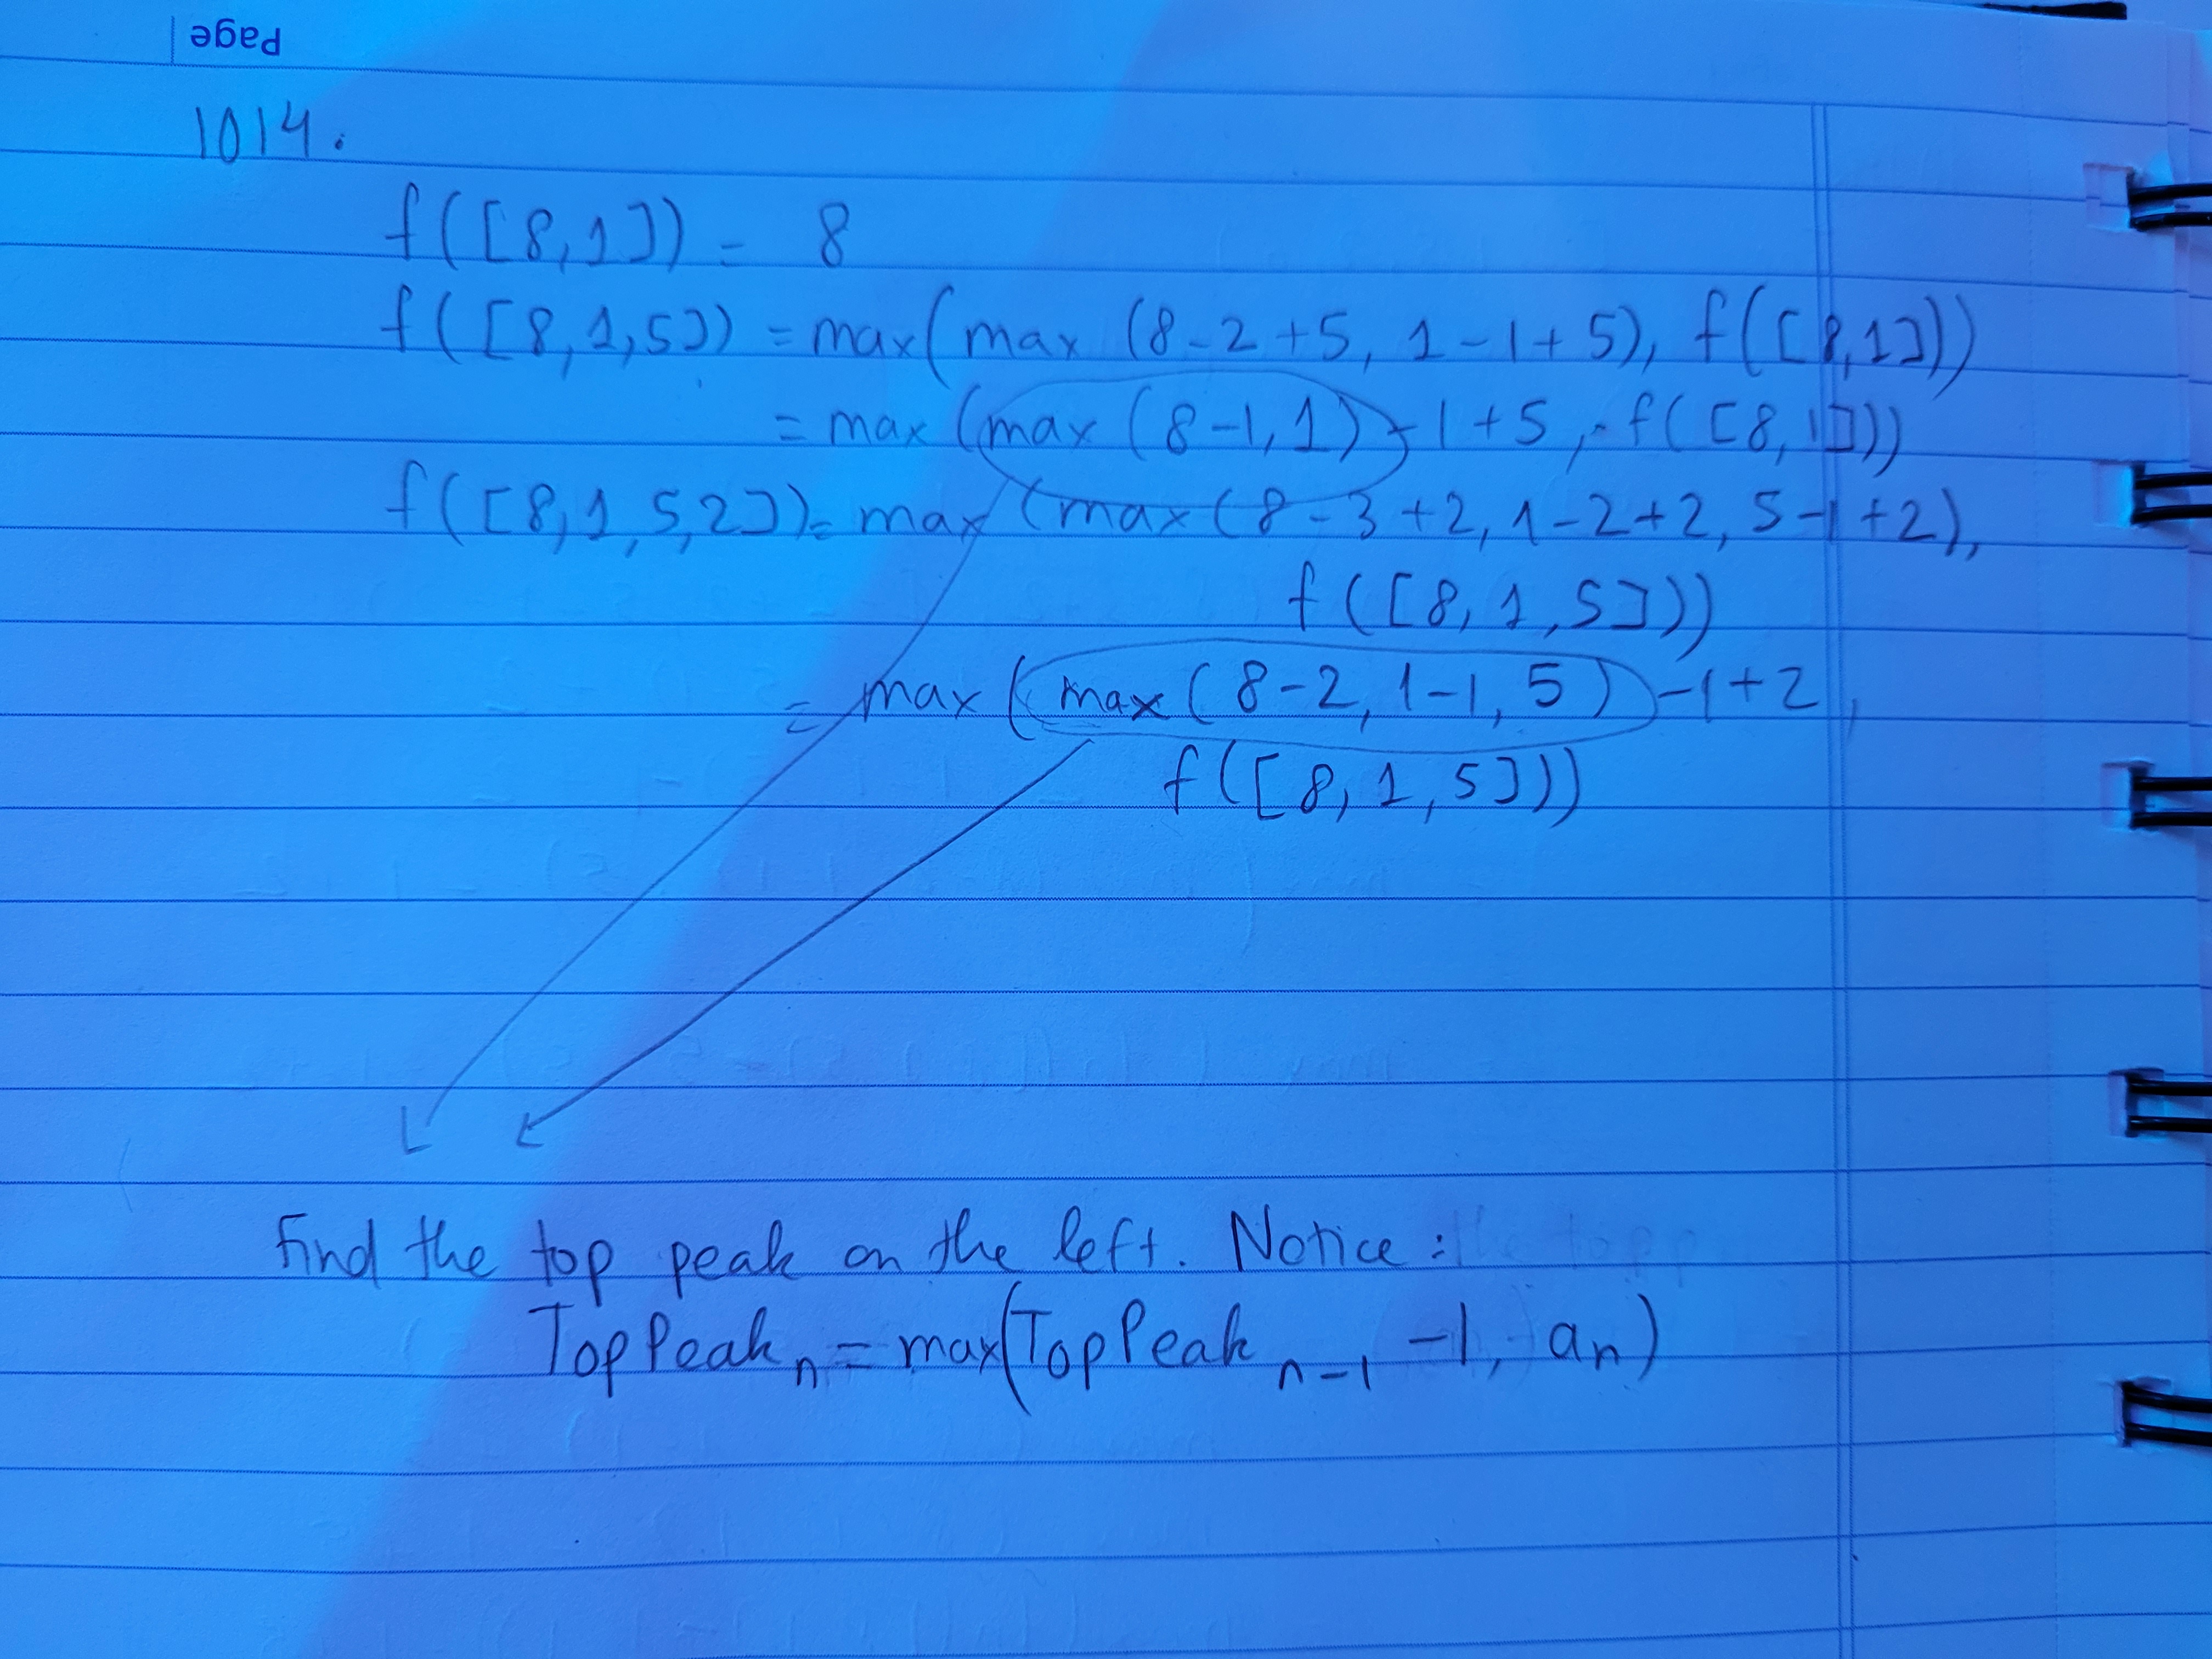 Page
1014.
f([8,1]) = 8
f([8,1,5]) = max(max (8-2+5, 1-1+5), f([8,1]))
= max (max (8-1,1) -1+5, f([8,1]))
f([8,1,5,2]) = max (max (8-3+2, 1-2+2, 5-1+2),
f([8,1,5]))
= max (max (8-2, 1-1, 5) -1+2,
f([8,1,5]))
Find the top peak on the left. Notice :
TopPeak n = max(TopPeak n-1 -1, an)